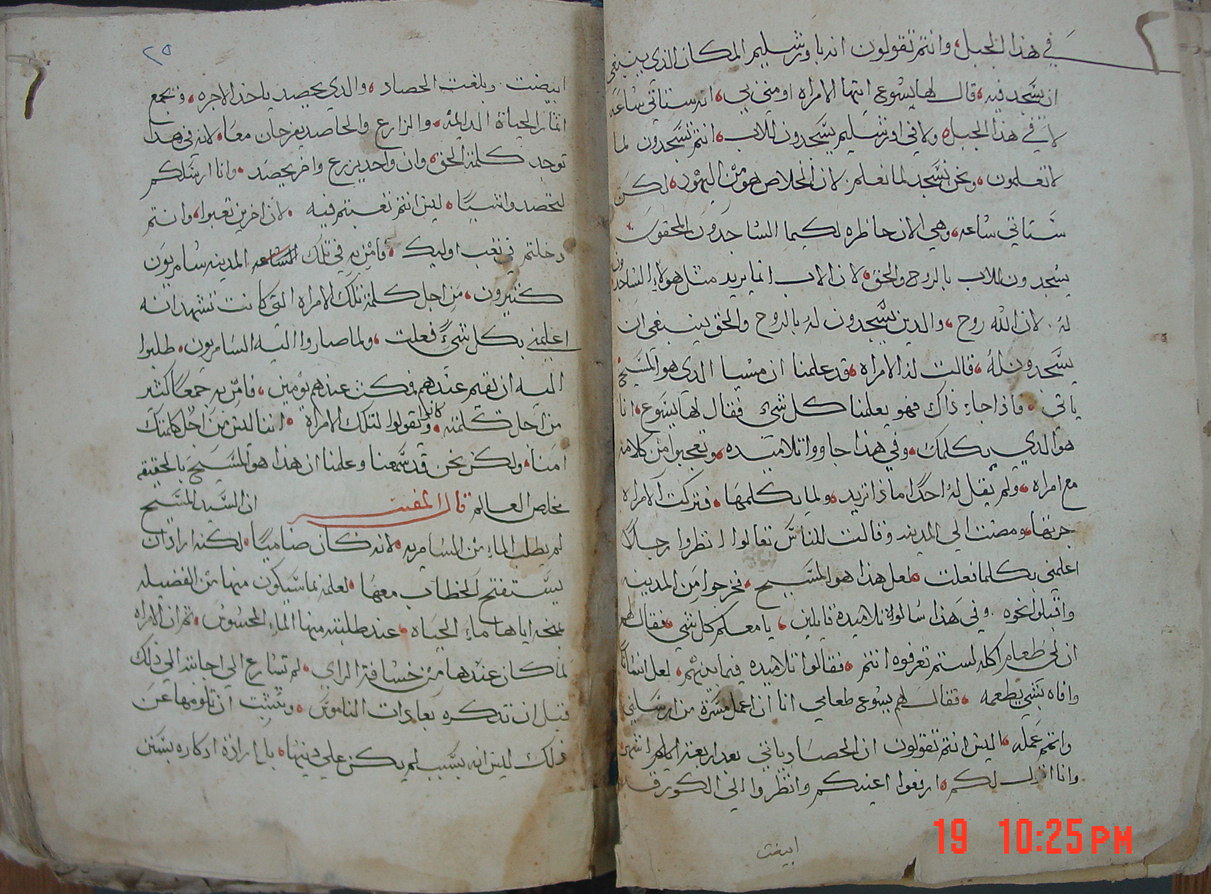 في هذا الجبل، وانتم تقولون انه باورشليم المكان الذي ينبغي
ان يسجد فيه، قال لها يسوع ايتها الامراه اومني بي، انه ستاتي ساعه
لا في هذا الجبل ولا في اورشليم يسجدون للاب، انتم تسجدون لما
لا تعلمون، ونحن نسجد لما نعلم، لان الخلاص هو من اليهود، لكن
ستاتي ساعه، وهي الان حاظره لكيما الساجدون المحقون
يسجدون للاب بالروح والحق، لان الاب انما يريد مثل هولاء الساجدون
له، لان الله روح، والدين يسجدون له بالروح والحق ينبغي ان
يسجدون له، قالت له الامراه، قد علمنا ان مسيا الدي هو المسيح
ياتي، فاذا جا ذاك فهو يعلمنا كل شي، فقال لها يسوع، انا
هو الدي يكلمك، وفي هذا جاووا تلاميده، وتعجبوا من كلامه
مع امراه، ولم يقل له احدا ماذا تريد، ولما يكلمها، فتركت الامراه
جرتها، ومضت الي المدينه وقالت للناس تعالوا انظروا رجلا
اعلمني بكلما فعلت، لعل هذا هو المسيح، فخرجوا من المدينه
واقبلوا نحوه، وفي هذا سالوه تلاميده قايلين، يا معلم كل شي، فقال لهم
ان لي طعام اكله لستم تعرفوه انتم، فقالوا تلاميده فيما بينهم، لعل انسانا
وافاه بشي يطعمه، فقال لهم يسوع طعامي انا ان اعمل مسرة من ارسلني
واتمم عمله، اليس انتم تقولون ان الحصاد ياتي بعد اربعة اشهر
وانا اقول لكم، ارفعوا اعينكم وانظروا الي الكور قد
ابيضت
٢٥
ابيضت وبلغت الحصاد، والدي يحصد ياخد الاجره، ويجمع
اتمار الحياة الدايمه، والزارع والحاصد يفرحان معا، لانه في هدا
توجد كلمة الحق، وان واحد يزرع واخر يحصد، وانا ارسلتكم
لتحصدوا شيا، ليس انتم تعبتم فيه، لان اخرين تعبوا، وانتم
دخلتم في تعب اوليك، فامن به في تلك الساعه المدينه سامريون
كتيرون، من اجل كلمة تلك الامراه التي كانت تشهد انه
اعلمني بكل شي فعلت، ولما صاروا اليه السامريون، طلبوا
اليه ان يقيم عندهم فمكت عندهم يومين، فامن به جمعا كتير
من اجل كلمته، وكانوا يقولوا لتلك الامراه، اننا ليس من اجل كلامك
امنا، ولكن نحن قد سمعنا وعلمنا ان هذا هو المسيح بالحقيقه
مخلص العالم قال المفسر ان السيد المسيح
لم يطلب الماء من السامريه، لانه كان ضاميا، لكنه اراد ان
يستفتح الخطاب معها، لعلمه بما سيكون منها من الفضيله
بمنحه اياها ماء الحياه، عند طلبته منها الماء المحسوس، تم ان الامراه
لما كان عندها من خسافة الراي، لم تسارع الي اجابته الي ذلك
قبل ان تدكره بعادات الناموس، وتثبت ان تلومها عن
ذلك ليس انه بسبب لم يكن علي دينها، با ارادة ادكاره بسنن
19 10:25 PM